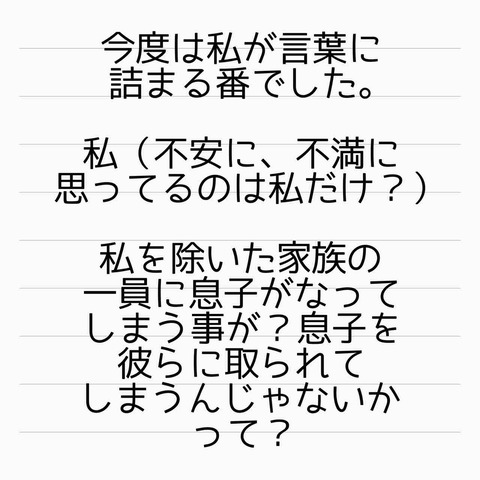 今度は私が言葉に
詰まる番でした。
私（不安に、不満に
思ってるのは私だけ？）
私を除いた家族の
一員に息子がなって
しまう事が？息子を
彼らに取られて
しまうんじゃないか
って？